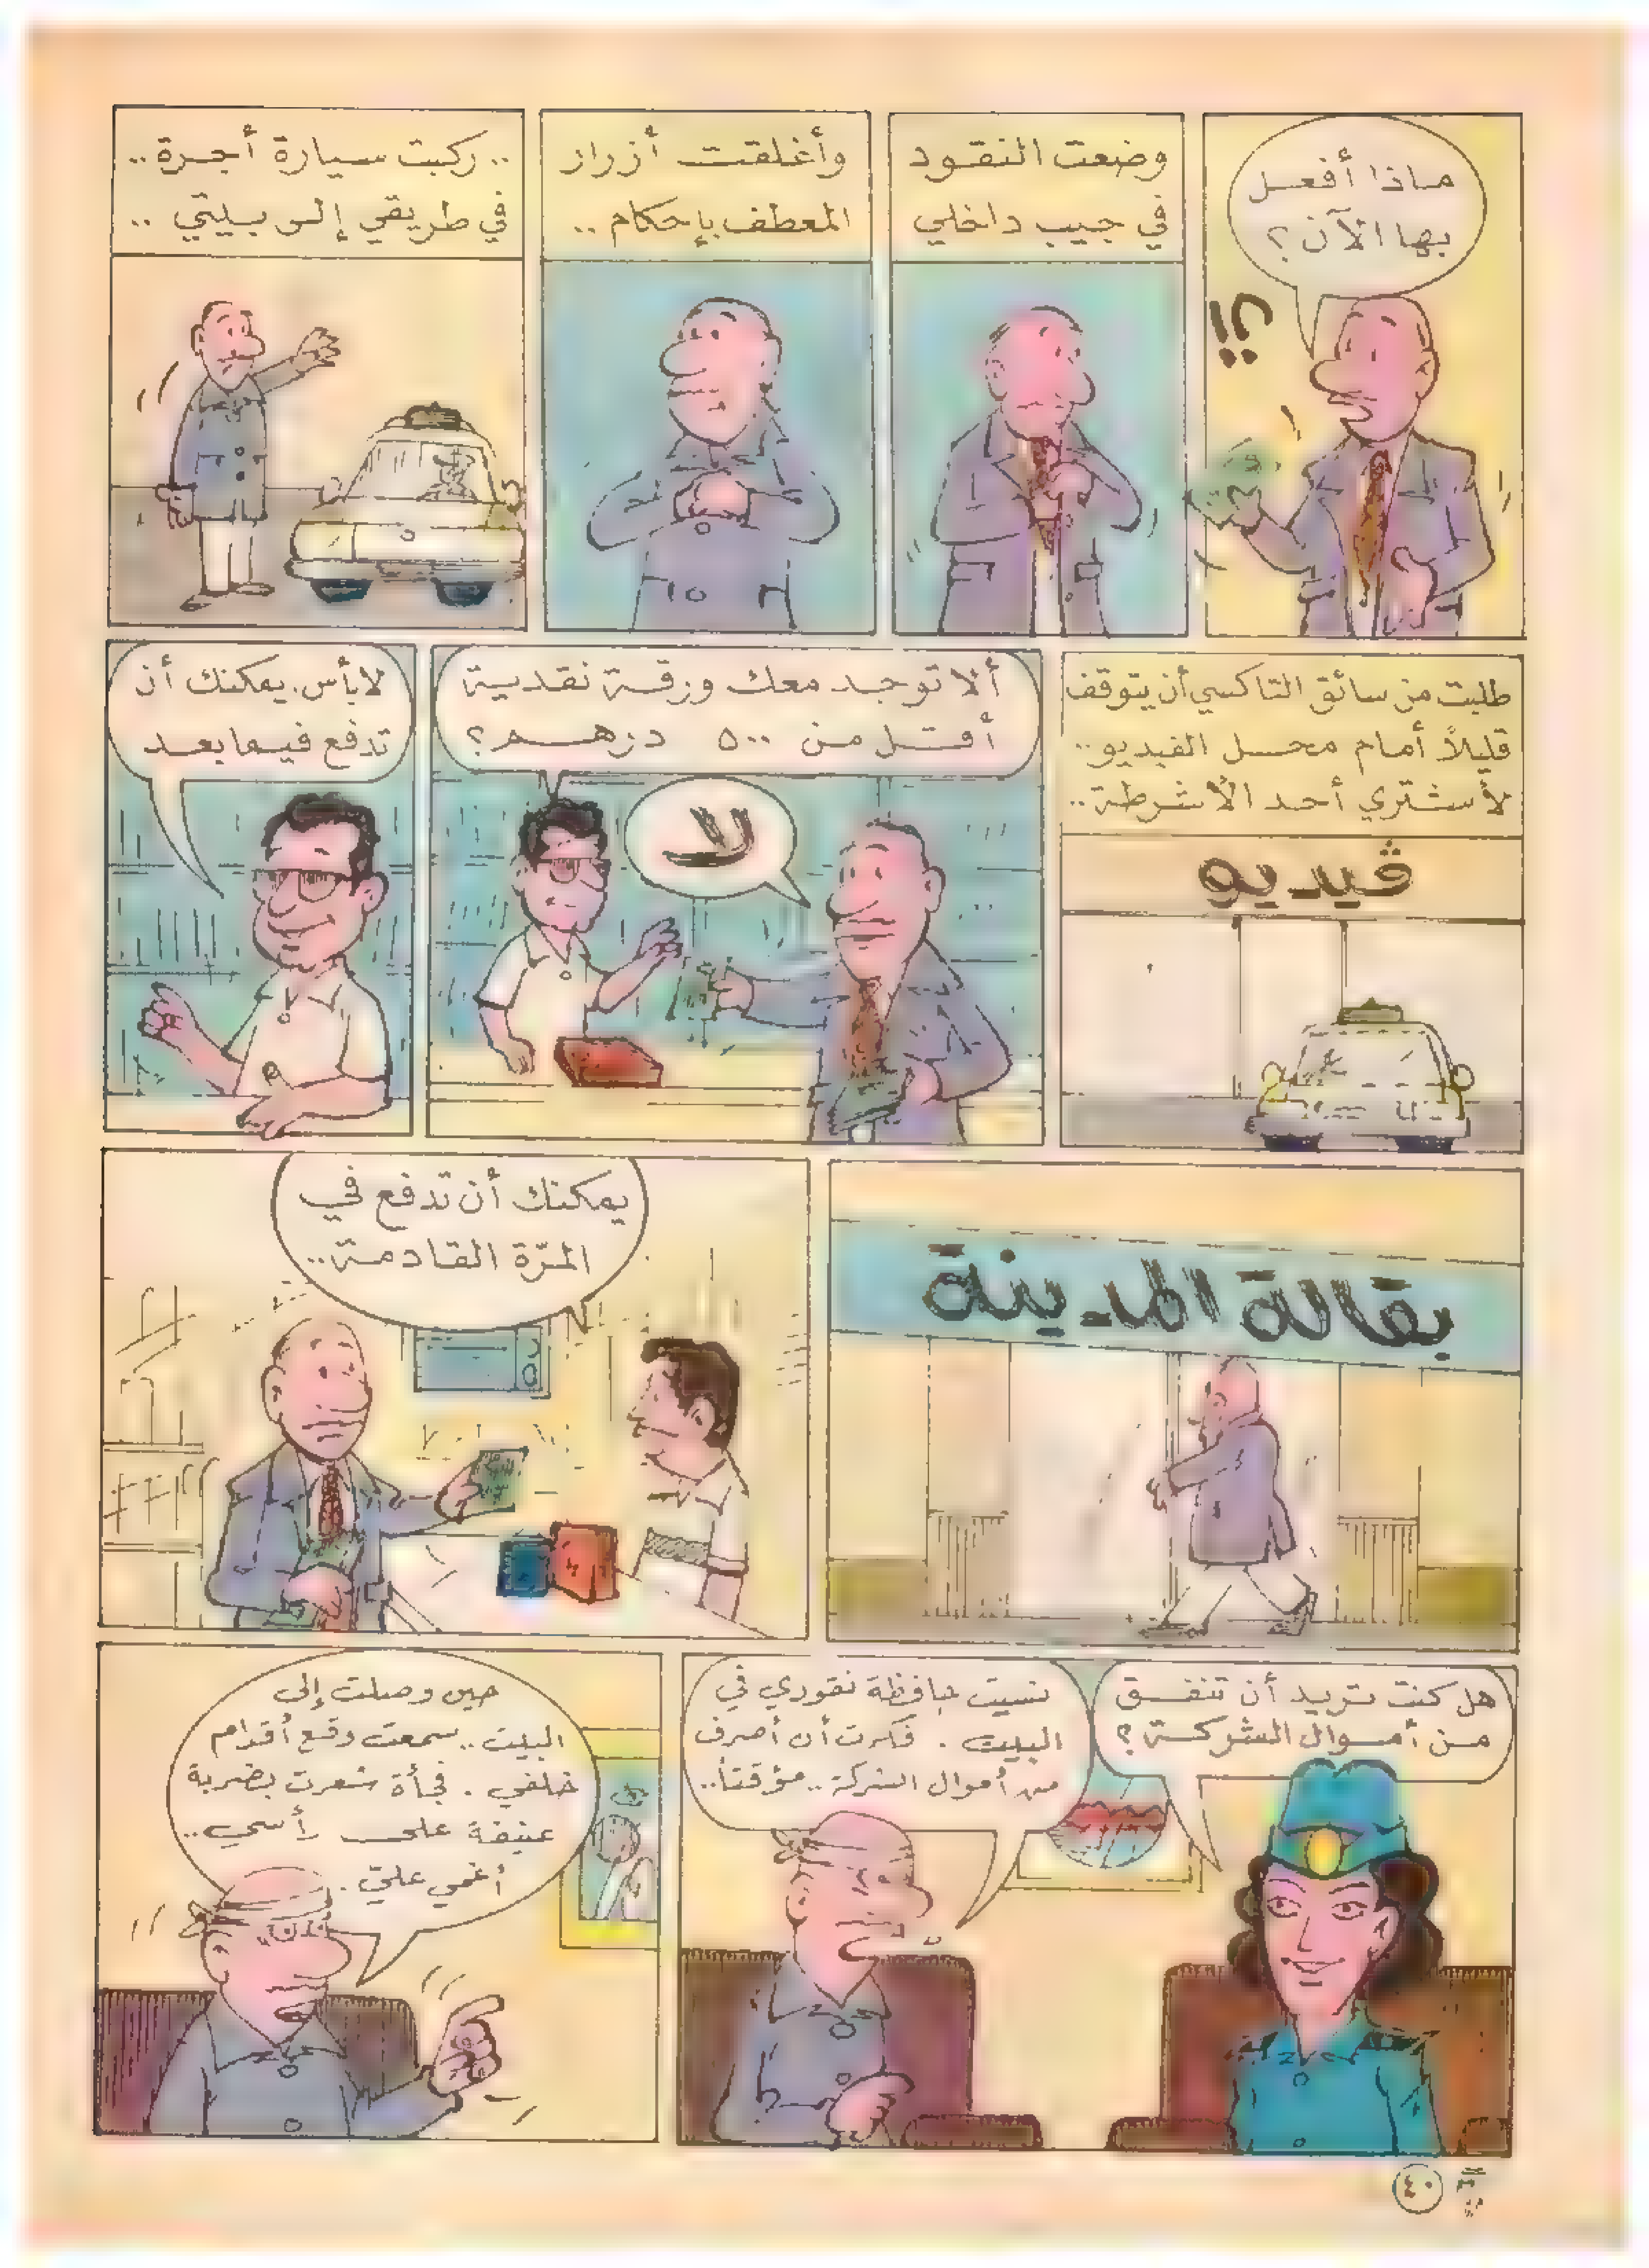 ماذا أفعل
بها الآن؟
؟!
وضعت النقود
في جيب داخلي
وأغلقت أزرار
المعطف بإحكام ..
.. ركبت سيارة أجرة ..
في طريقي إلى بيتي ..
طلبت من سائق التاكسي أن يتوقف
قليلاً أمام محل الفيديو ..
لأشتري أحد الأشرطة ..
ڤيديو
ألا توجد معك ورقة نقدية
أقل من ٥٠٠ درهم؟
لا
لا بأس. يمكنك أن
تدفع فيما بعد
بقالة المدينة
يمكنك أن تدفع في
المرّة القادمة ..
هل كنت تريد أن تنفق
من أموال الشركة؟
نسيت حافظة نقودي في
البيت . فكرت أن أصرف
من أموال الشركة .. مؤقتاً ..
حين وصلت إلى
البيت .. سمعت وقع أقدام
خلفي . فجأة شعرت بضربة
عنيفة على رأسي ..
أغمي عليّ .
٤٠